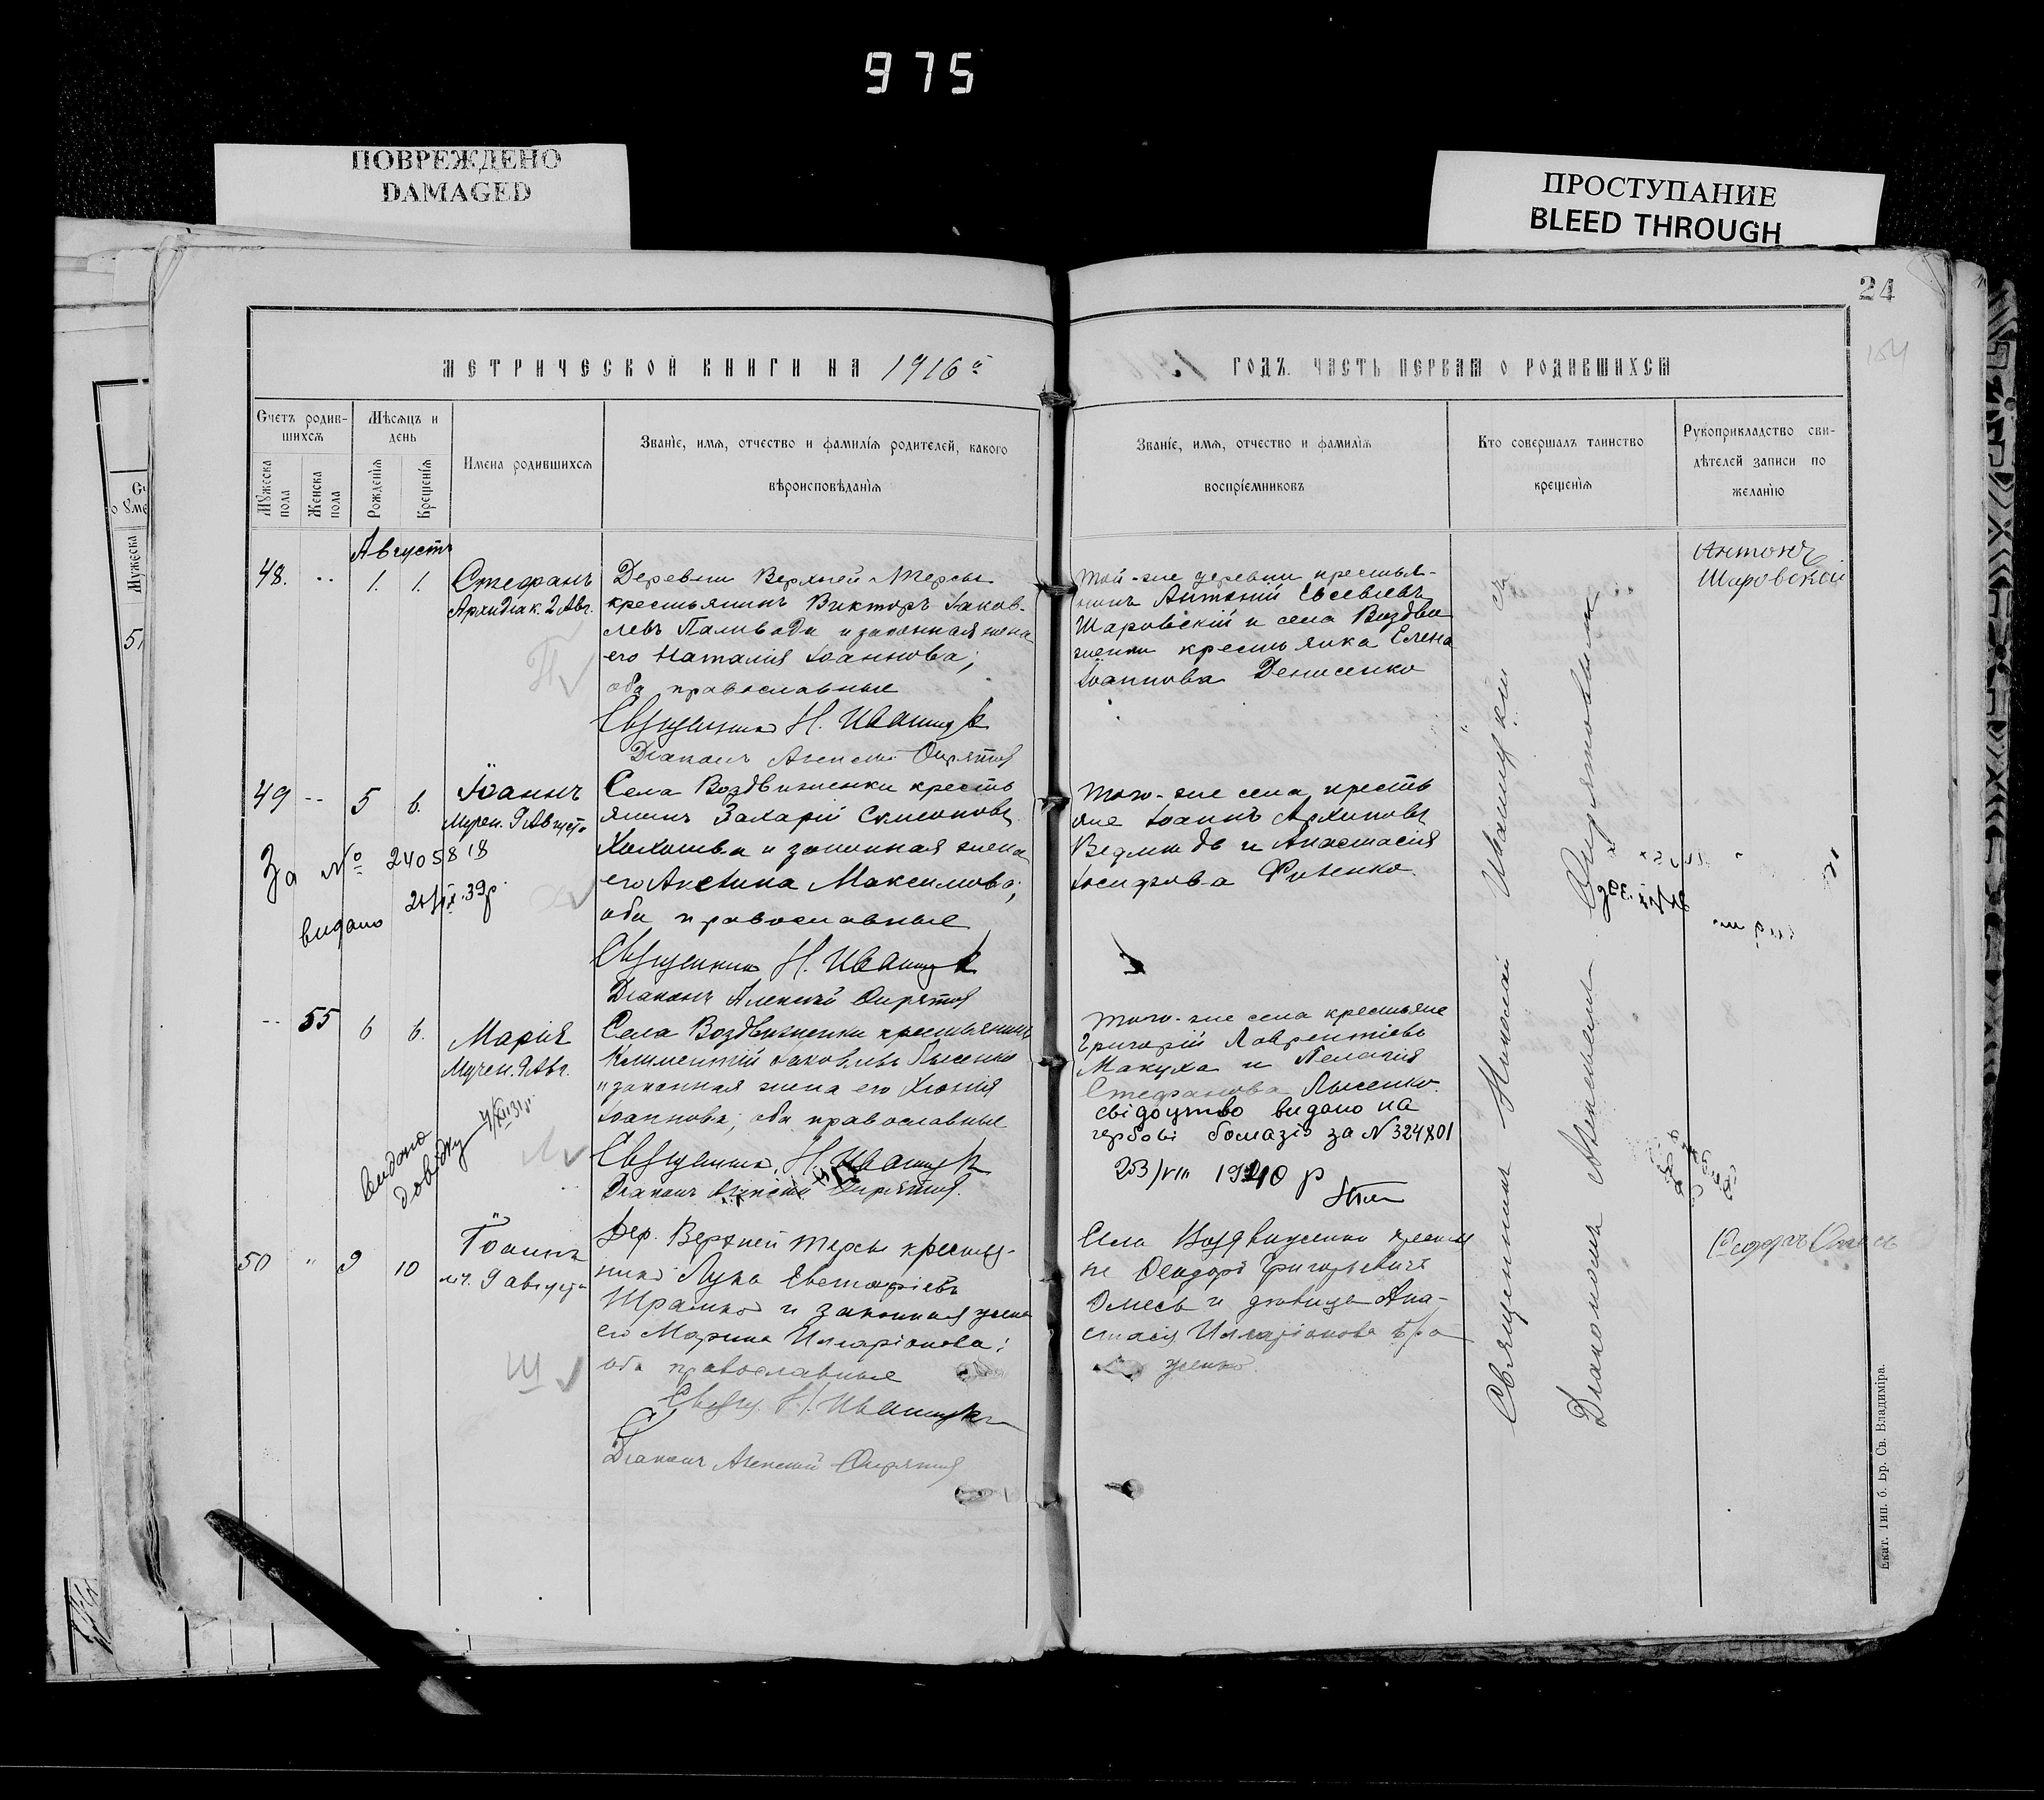 975
ПОВРЕЖДЕНО
DAMAGED
ПРОСТУПАНИЕ
BLEED THROUGH
24
154
МЕТРИЧЕСКОЙ КНИГИ НА 1916й
ГОДЪ. ЧАСТЬ ПЕРВАЯ О РОДИВШИХСЯ
Счетъ родив-
шихся
Мужеска пола
Женска пола
Мѣсяцъ и
день
Рожденія
Крещенія
Имена родившихся
Званіе, имя, отчество и фамилія родителей, какого
вѣроисповѣданія
Званіе, имя, отчество и фамилія
воспріемниковъ
Кто совершалъ таинство
крещенія
Рукоприкладство сви-
дѣтелей записи по
желанію
Августъ
48. 1. 1.
Стефанъ
Архидіак. 2 Авг.
Деревни Верхней Терсы
крестьянинъ Викторъ Іаков-
левъ Паливода и законная жена
его Наталія Іоаннова;
оба православные
Священникъ Н. Иваницкій
Діаконъ Алексій
Той-же деревни крестья-
нинъ Антоній Евсевіевъ
Шаровскій и села Воздви
женки крестьянка Елена
Іоаннова Денисенко
Антонъ
Шаровской
49 5 6.
Іоаннъ
Мучен. 9 Августа
Села Воздвиженки кресть
янинъ Захарій Симоновъ
и законная жена
его Максимова;
оба православные
Священникъ Н. Иваницкій
Діаконъ Алексій
Того-же села кресть
яне Іоаннъ Архиповъ
Ведмидь и Анастасія
Іосифова
За № 2405818
видано
55 6 6.
Марія
Мучен. 9 Авг.
Села Воздвиженки крестьянинъ
Климентій Іаковлевъ Лысенко
и законная жена его Хіонія
Іоаннова; оба православные
Священникъ Н. Иваницкій
Діаконъ Алексій
Того-же села крестьяне
Григорій Лаврентіевъ
Макуха и Пелагія
Стефанова Лысенко.
свідоцтво видано на
гербові бомазі за № 324801
1940 р
видано
довідку
50 9 10
Іоаннъ
9 августа
Дер. Верхней Терсы крестья-
нинъ Лука Евстафіевъ
и законная жена
его Марина Илларіонова;
оба православные
Свящ. Н. Иваницкій
Діаконъ Алексій
Села Воздвиженки крестья
не Ѳеодоръ Григорьевичъ
и дѣвица Ана-
стасія Илларіонова
Священникъ Николай Иваницкій съ
Діакономъ Алексіемъ
Екат. Тип. б. Бр. Св. Владиміра.